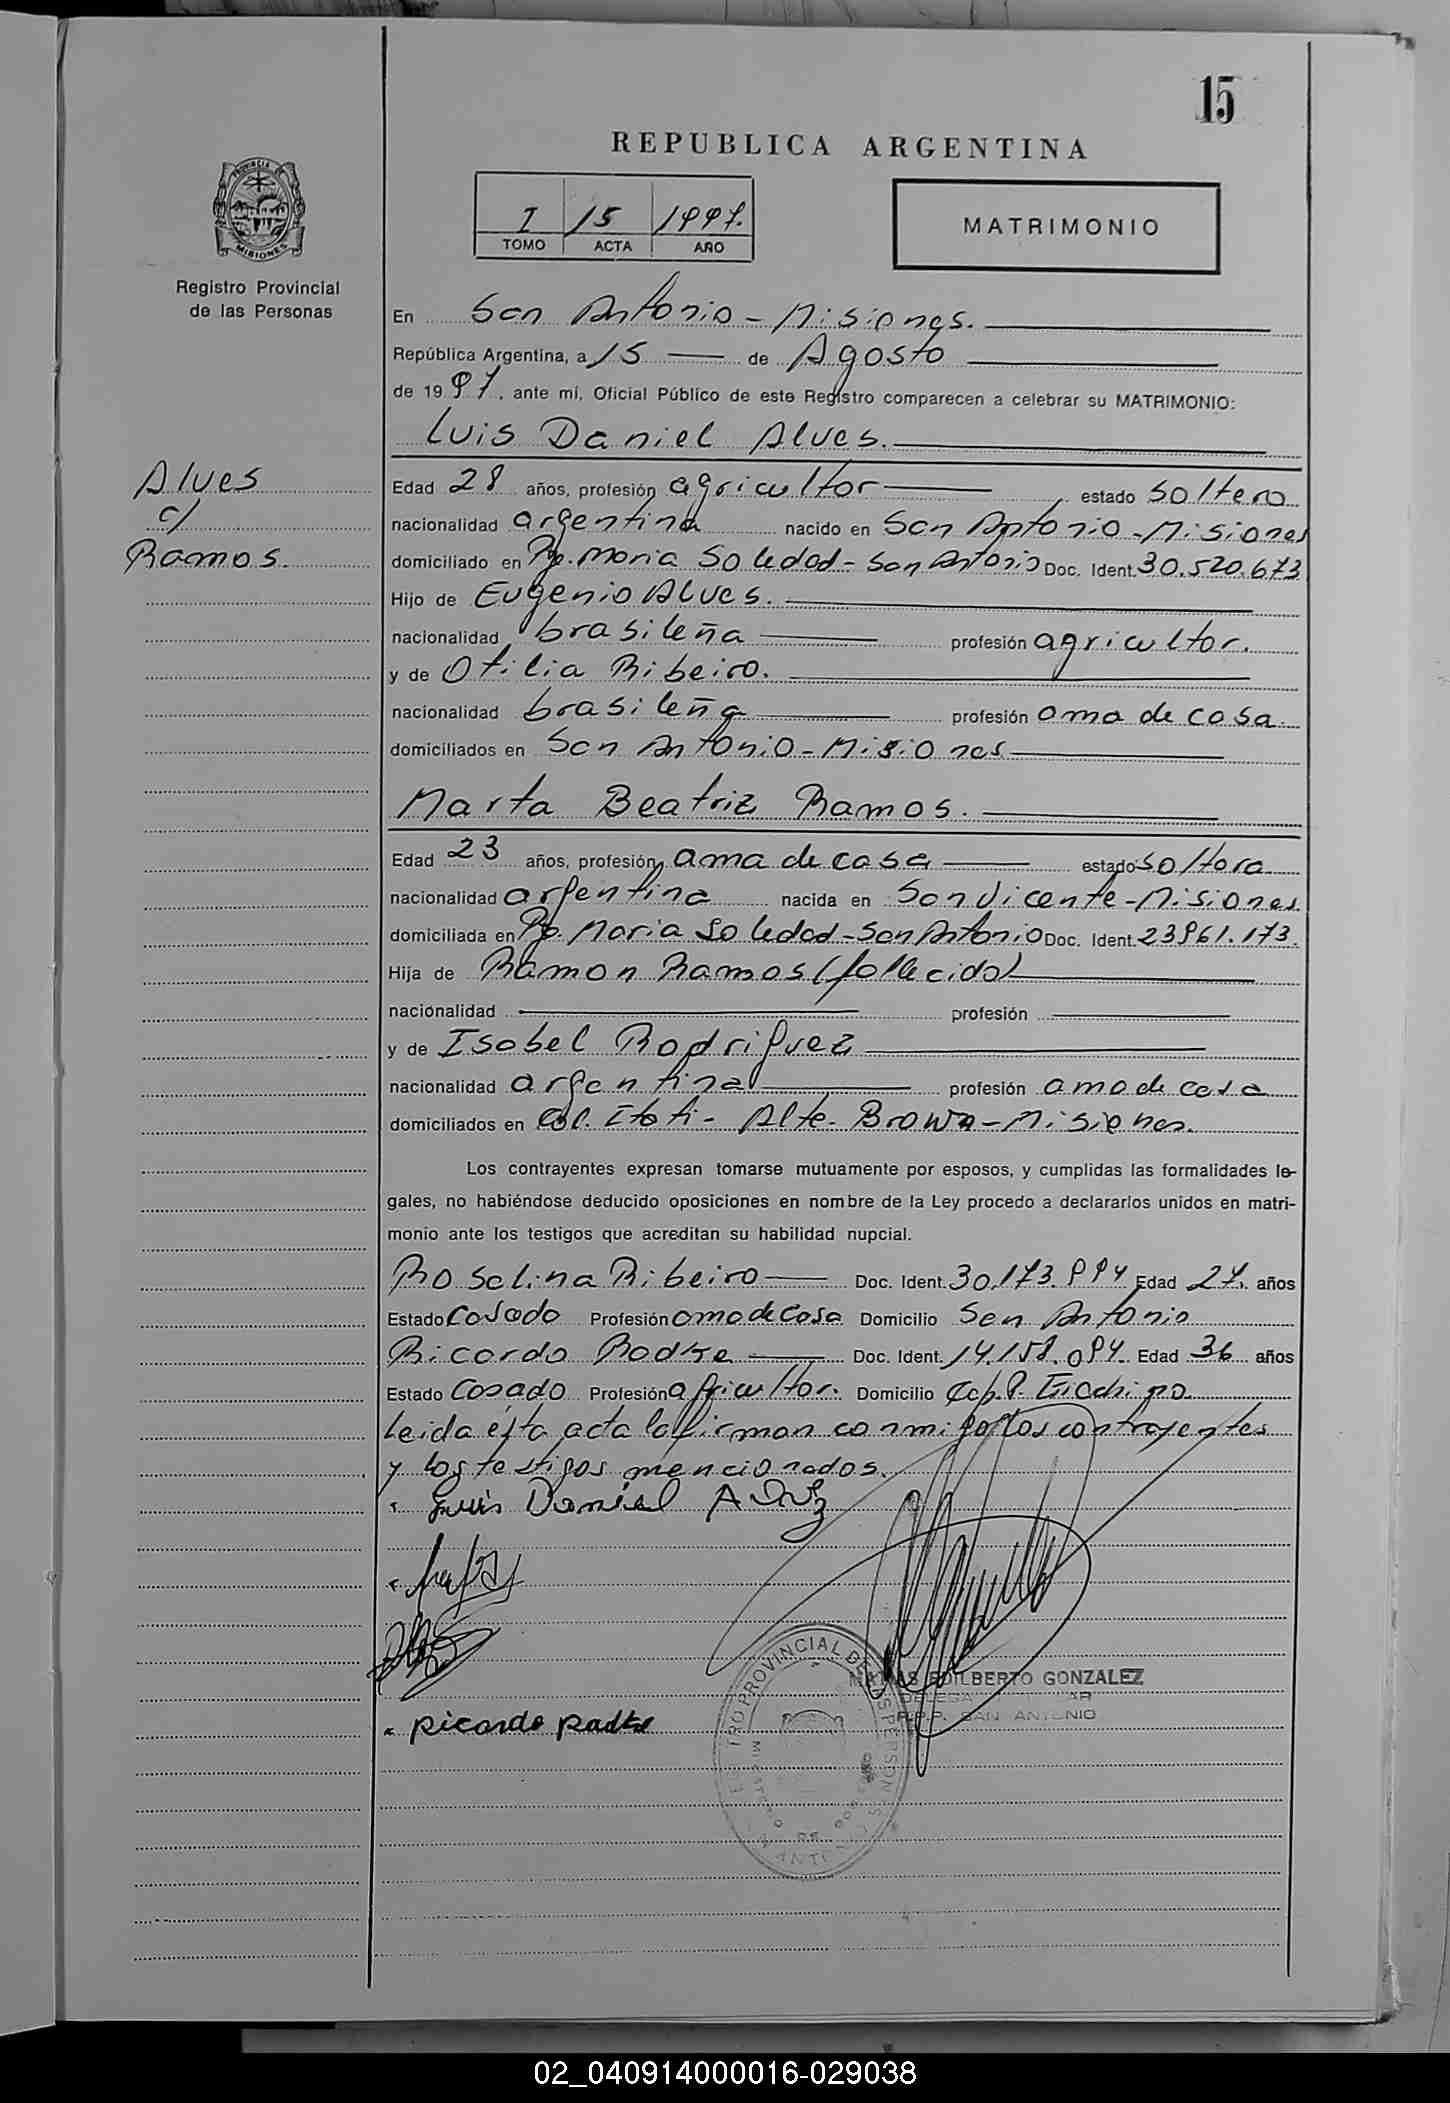 15
REPUBLICA ARGENTINA
I 15 1997.
TOMO ACTA AÑO
MATRIMONIO
PROVINCIA DE
MISIONES
Registro Provincial
de las Personas
En San Antonio - Misiones.
República Argentina, a 15 de Agosto
de 19 97, ante mí, Oficial Público de este Registro comparecen a celebrar su MATRIMONIO:
Luis Daniel Alves.
Alves
c/
Ramos.
Edad 28 años, profesión agricultor estado soltero
nacionalidad argentina nacido en San Antonio - Misiones
domiciliado en Pje. Maria Soledad - San Antonio Doc. Ident. 30.520.673
Hijo de Eugenio Alves.
nacionalidad brasileña profesión agricultor.
y de Otilia Ribeiro.
nacionalidad brasileña profesión ama de casa.
domiciliados en San Antonio - Misiones
Marta Beatriz Ramos.
Edad 23 años, profesión ama de casa estado soltera
nacionalidad argentina nacida en San Vicente - Misiones.
domiciliada en Pje. Maria Soledad - San Antonio Doc. Ident. 23.961.173.
Hija de Ramon Ramos (fallecido)
nacionalidad profesión
y de Isabel Rodriguez
nacionalidad argentina profesión ama de casa
domiciliados en Col. Itati - Alte. Brown - Misiones.
Los contrayentes expresan tomarse mutuamente por esposos, y cumplidas las formalidades le-
gales, no habiéndose deducido oposiciones en nombre de la Ley procedo a declararlos unidos en matri-
monio ante los testigos que acreditan su habilidad nupcial.
Roselina Ribeiro Doc. Ident. 30.173.994 Edad 27. años
Estado casado Profesión ama de casa Domicilio San Antonio
Ricardo Radke Doc. Ident. 14.158.094. Edad 36 años
Estado casado Profesión agricultor. Domicilio
Leida ésta acta la firman conmigo los contrayentes
y los testigos mencionados.
Luis Daniel Alvez
Ricardo Radke
EDILBERTO GONZALEZ
R.P.P. SAN ANTONIO
REGISTRO PROVINCIAL DE LAS PERSONAS
02_040914000016-029038